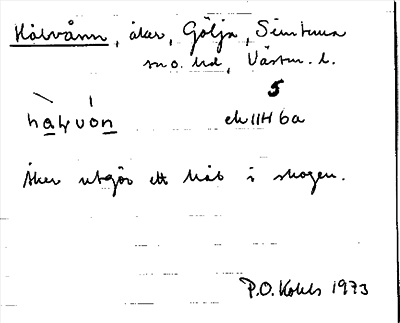 Hålvånn, åker, Gölja, Simtuna
sn o. hd, Västm. l.
5
ek 11H 6a
Åker utgör ett hål i skogen.
P.O. 1973